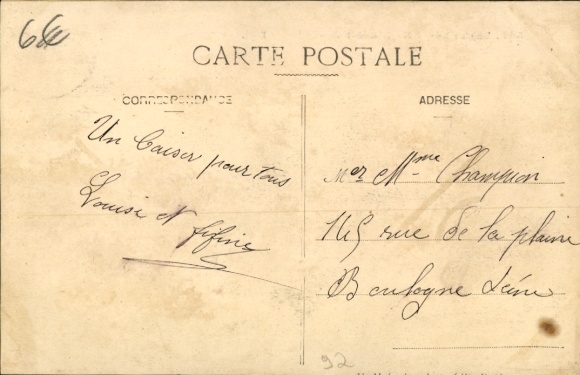 68
CARTE POSTALE
CORRESPONDANCE
Un baiser pour tous
Louise et fifine
ADRESSE
Mer Mme Champion
145 rue de la plaine
Boulogne Seine
92